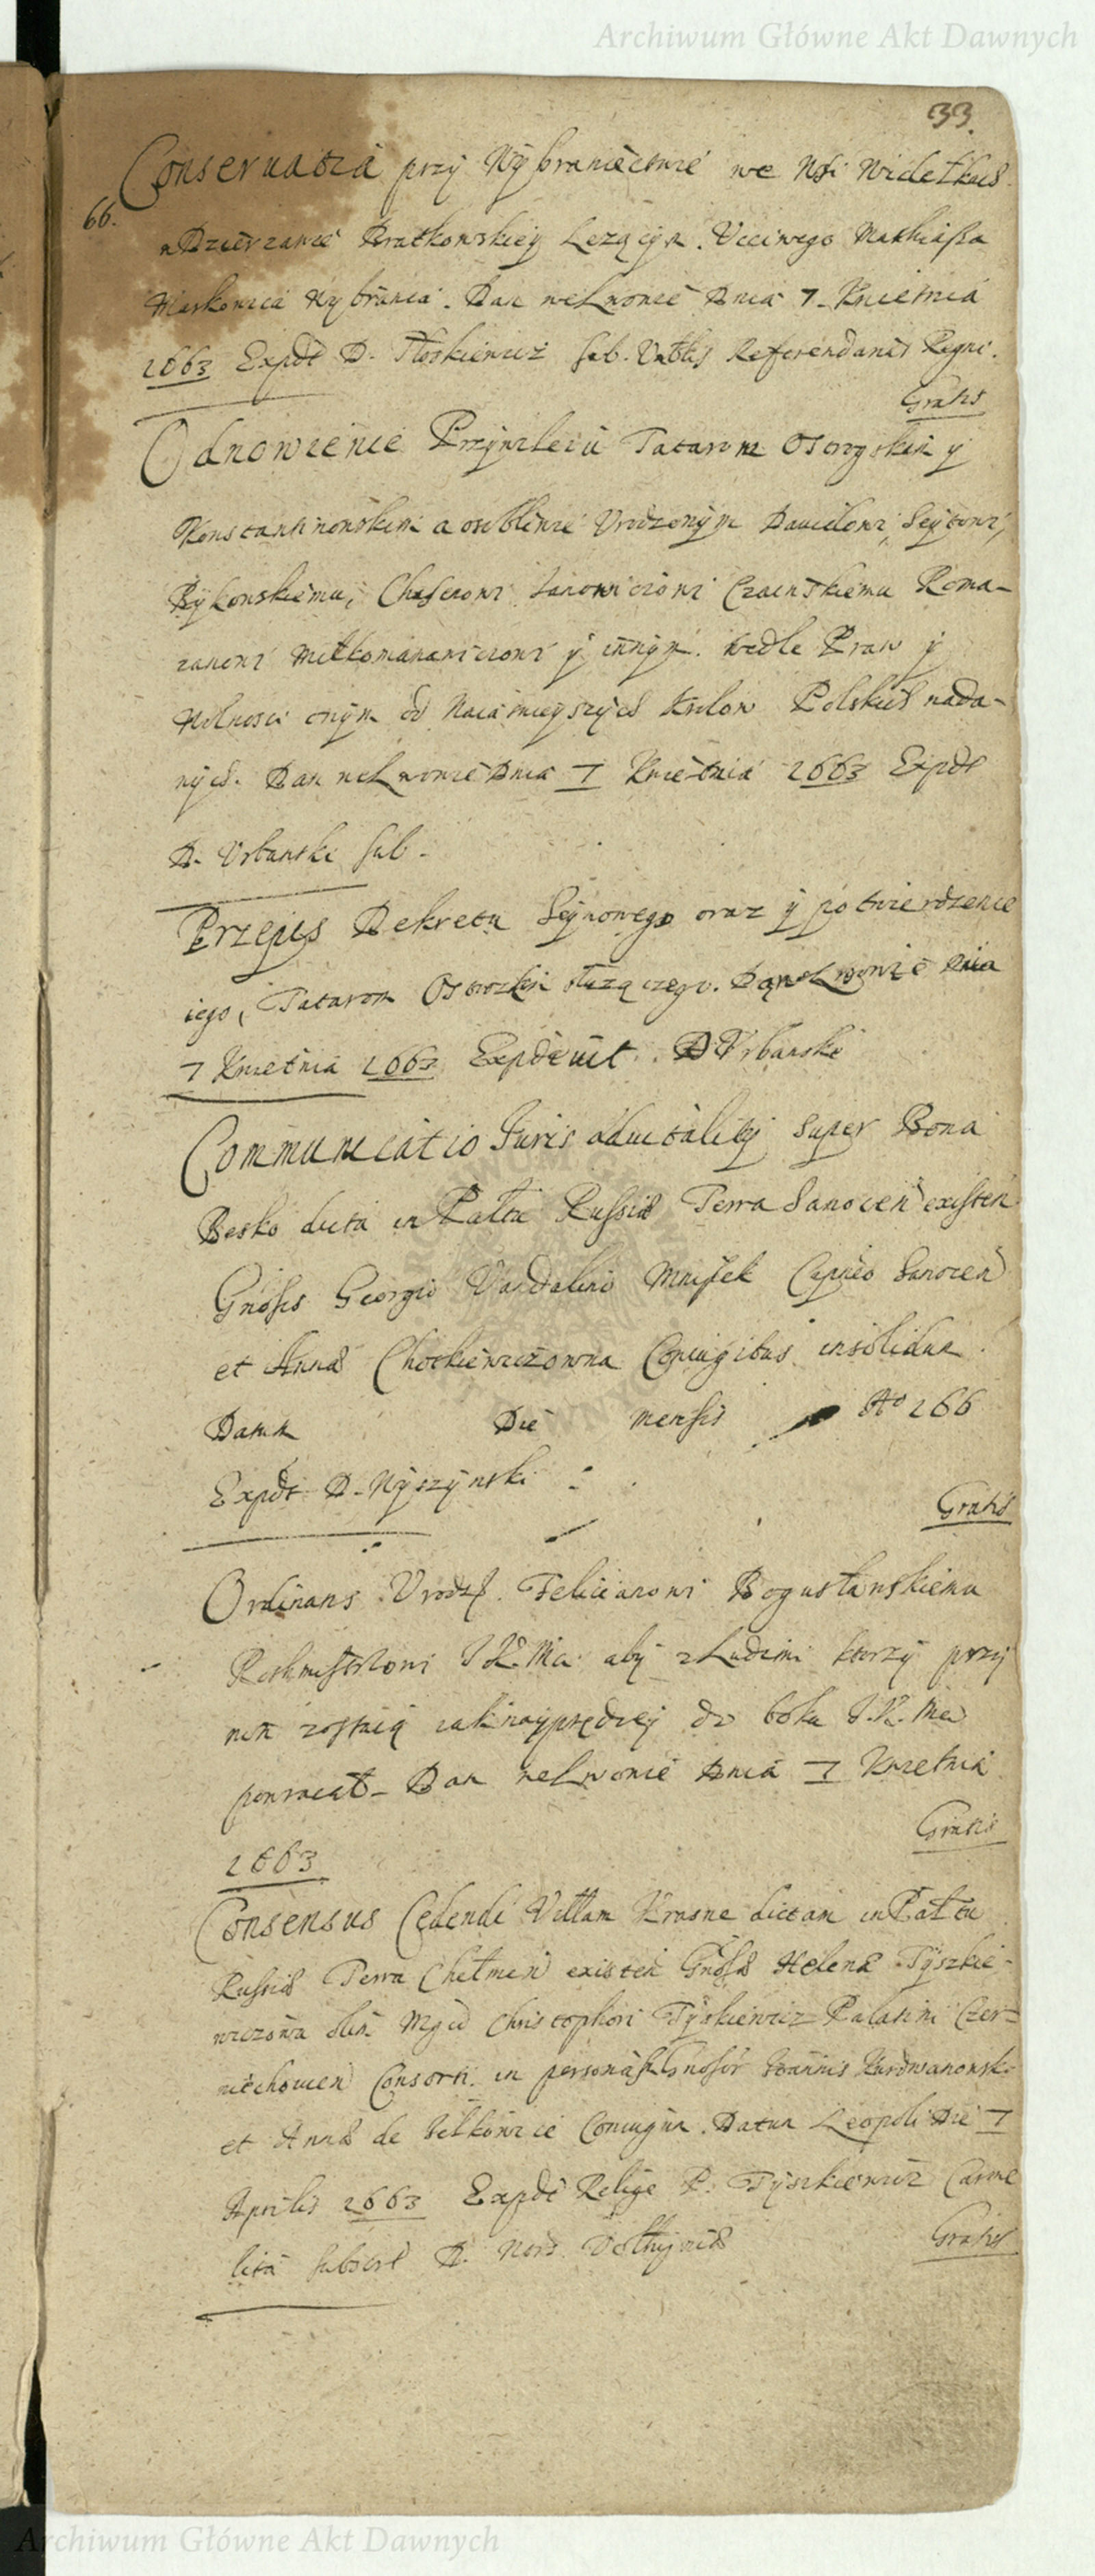 Archiwum Główne Akt Dawnych
33.
Conseruatia przy Wybraniectwie we Wsi Widełkach
66.
w Dzierzawie Bratkowskiey Lezącym. Vcciwego Mathiasza
Maskowica Wybranca. Dan we Lwowie Dnia 7. Kwietnia
1663 Expdt D. Floskiewicz sub. Referendarii Regni.
Gratis
Odnowienie Przywileiu Tatarom Ostrogskim y
Konstantinowskim a osobliwie Vrodzonym Dawidowi, Seytowi,
Bykowskiemu, Janowiczowi Roma-
zanowi y innym. wedle Praw y
Wolnosci onym od Naiasnieyszych Krolow Polskich nada-
nych. Dan we Lwowie Dnia 7 Kwietnia 1663 Expdt
D. Vrbanski sub.
Przepis Dekretu Seymowego oraz y potwierdzenie
iego, Tatarom Ostrozkim słuzączego. Dan we Lwowie Dnia
7 Kwietnia 1663 Expdeuit. D Vrbanski
Communicatio Iuris aduitalitij super Bona
Besko dicta in Paltu Russiæ Terra Sanocen existen
Gnosis Georgio Vandalino Mniszek Capneo Sanocen
et Annæ Chotkiewiczowna Coniugibus insolidum.
Datum Die mensis Ao 166
Expdt D. Wyszynski
Gratis
Ordinans Vrodz. Felicianowi Bogusławskiemu
Rothmistrzowi J.K.Mci aby z Ludzmi ktorzy przy
nim zostaią iak nayprędzey do boku J.K.Mci
powracał. Dan we Lwowie Dnia 7 Kwietnia
Gratis
1663
Consensus Cedendi Villam Krasne dictam in Paltu
Russiæ Terra Chelmen existen Gnosæ Helenæ Tyszkie-
wiczowa olim Mgci Christophori Tyskiewicz Palatini Czer-
niechouien Consorti. in personas Gnosor Ioannis Kurdwanowsk.
et Annæ de Coniugum. Datum Leopoli Die 7
Aprilis 1663 Expdt Relige P. Tyszkiewicz Carme
lita subscrt D.
Gratis
Archiwum Główne Akt Dawnych